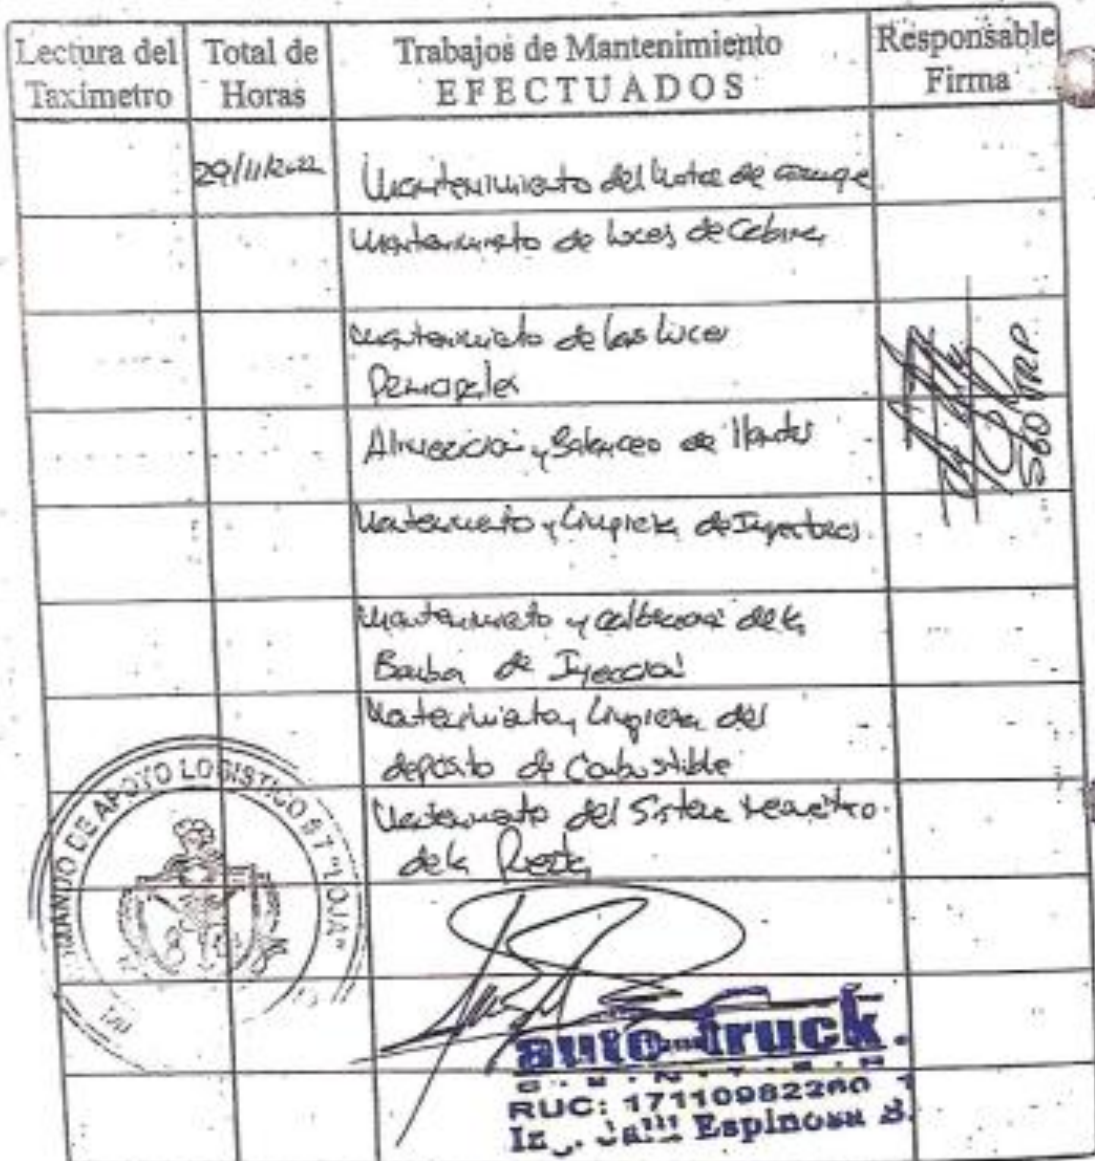 Lectura del Taxímetro
Total de Horas
Trabajos de Mantenimiento
EFECTUADOS
Responsable Firma
29/11/2022
Mantenimiento del Motor de arranque
Mantenimiento de luces de Cabina
Mantenimiento de las luces
Alineación y Balanceo de llantas
Mantenimiento y limpieza de Inyectores
Mantenimiento y calibración de la
Bomba de Inyección
Mantenimiento y limpieza del
depósito de Combustible
Mantenimiento del Sistema
de la Puerta
SGO TRP
COMANDO DE APOYO LOGISTICO # 7 "LOJA"
auto truck
RUC: 17110982260 1
Espinosa B.